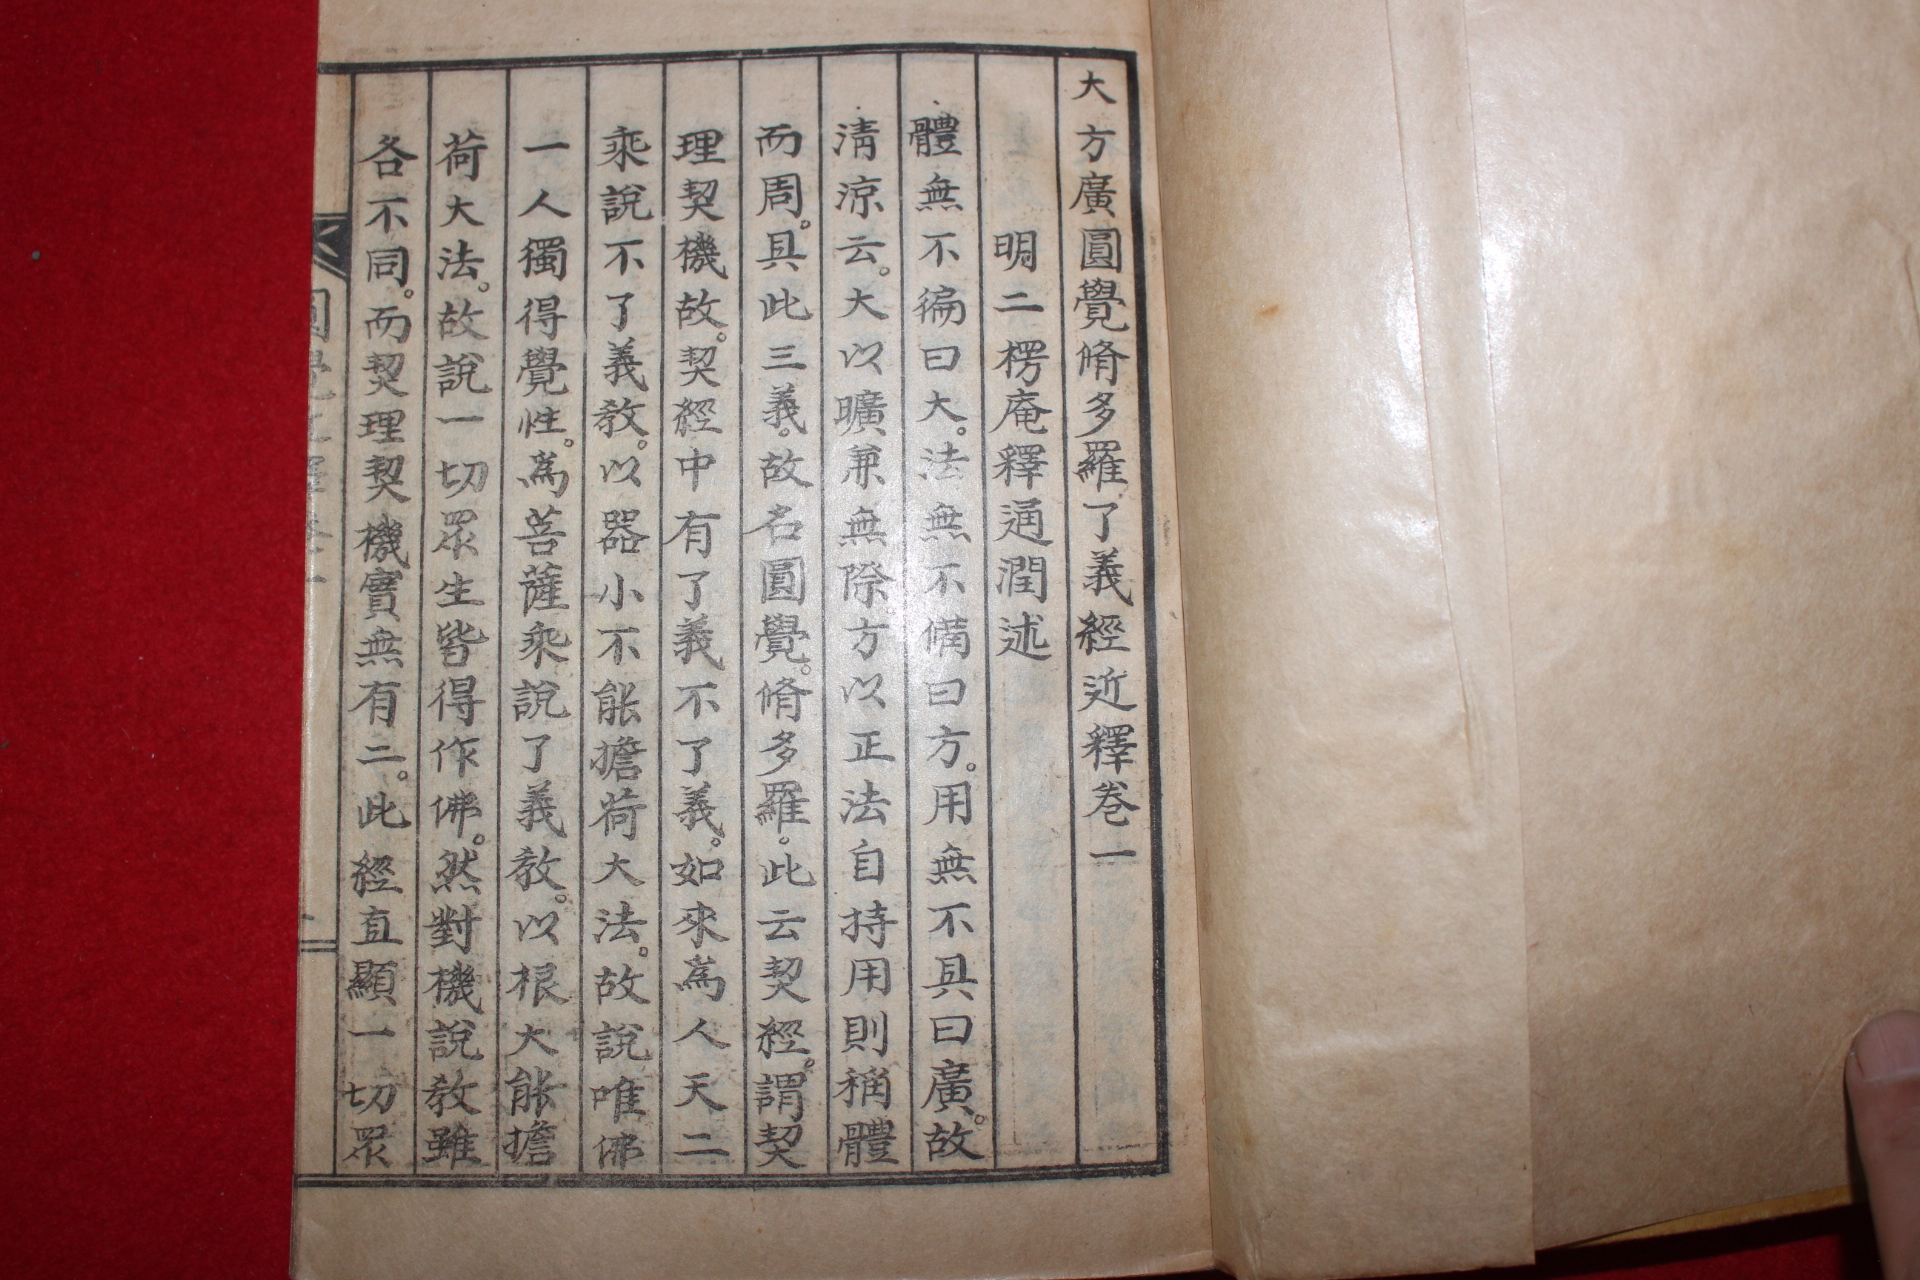 大方廣圓覺脩多羅了義經近釋卷一
明二楞庵釋通潤述
體無不徧曰大。法無不備曰方。用無不具曰廣。故
清涼云。大以曠兼無際。方以正法自持。用則稱體
而周。具此三義。故名圓覺。脩多羅。此云契經。謂契
理契機故。契經中有了義不了義。如來爲人天二
乘說不了義教。以器小不能擔荷大法。故說唯佛
一人獨得覺性。爲菩薩乘說了義教。以根大能擔
荷大法。故說一切眾生皆得作佛。然對機說教雖
各不同。而契理契機實無有二。此經直顯一切眾